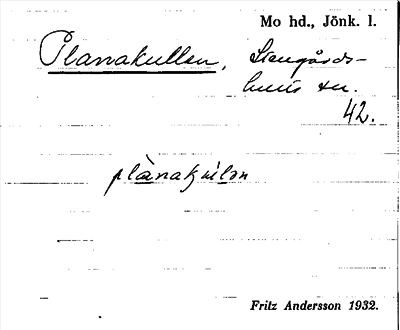 Mo hd., Jönk. l.
Planakullen, Stengårds-
huus sn.
42.
plànakullən
Fritz Andersson 1932.